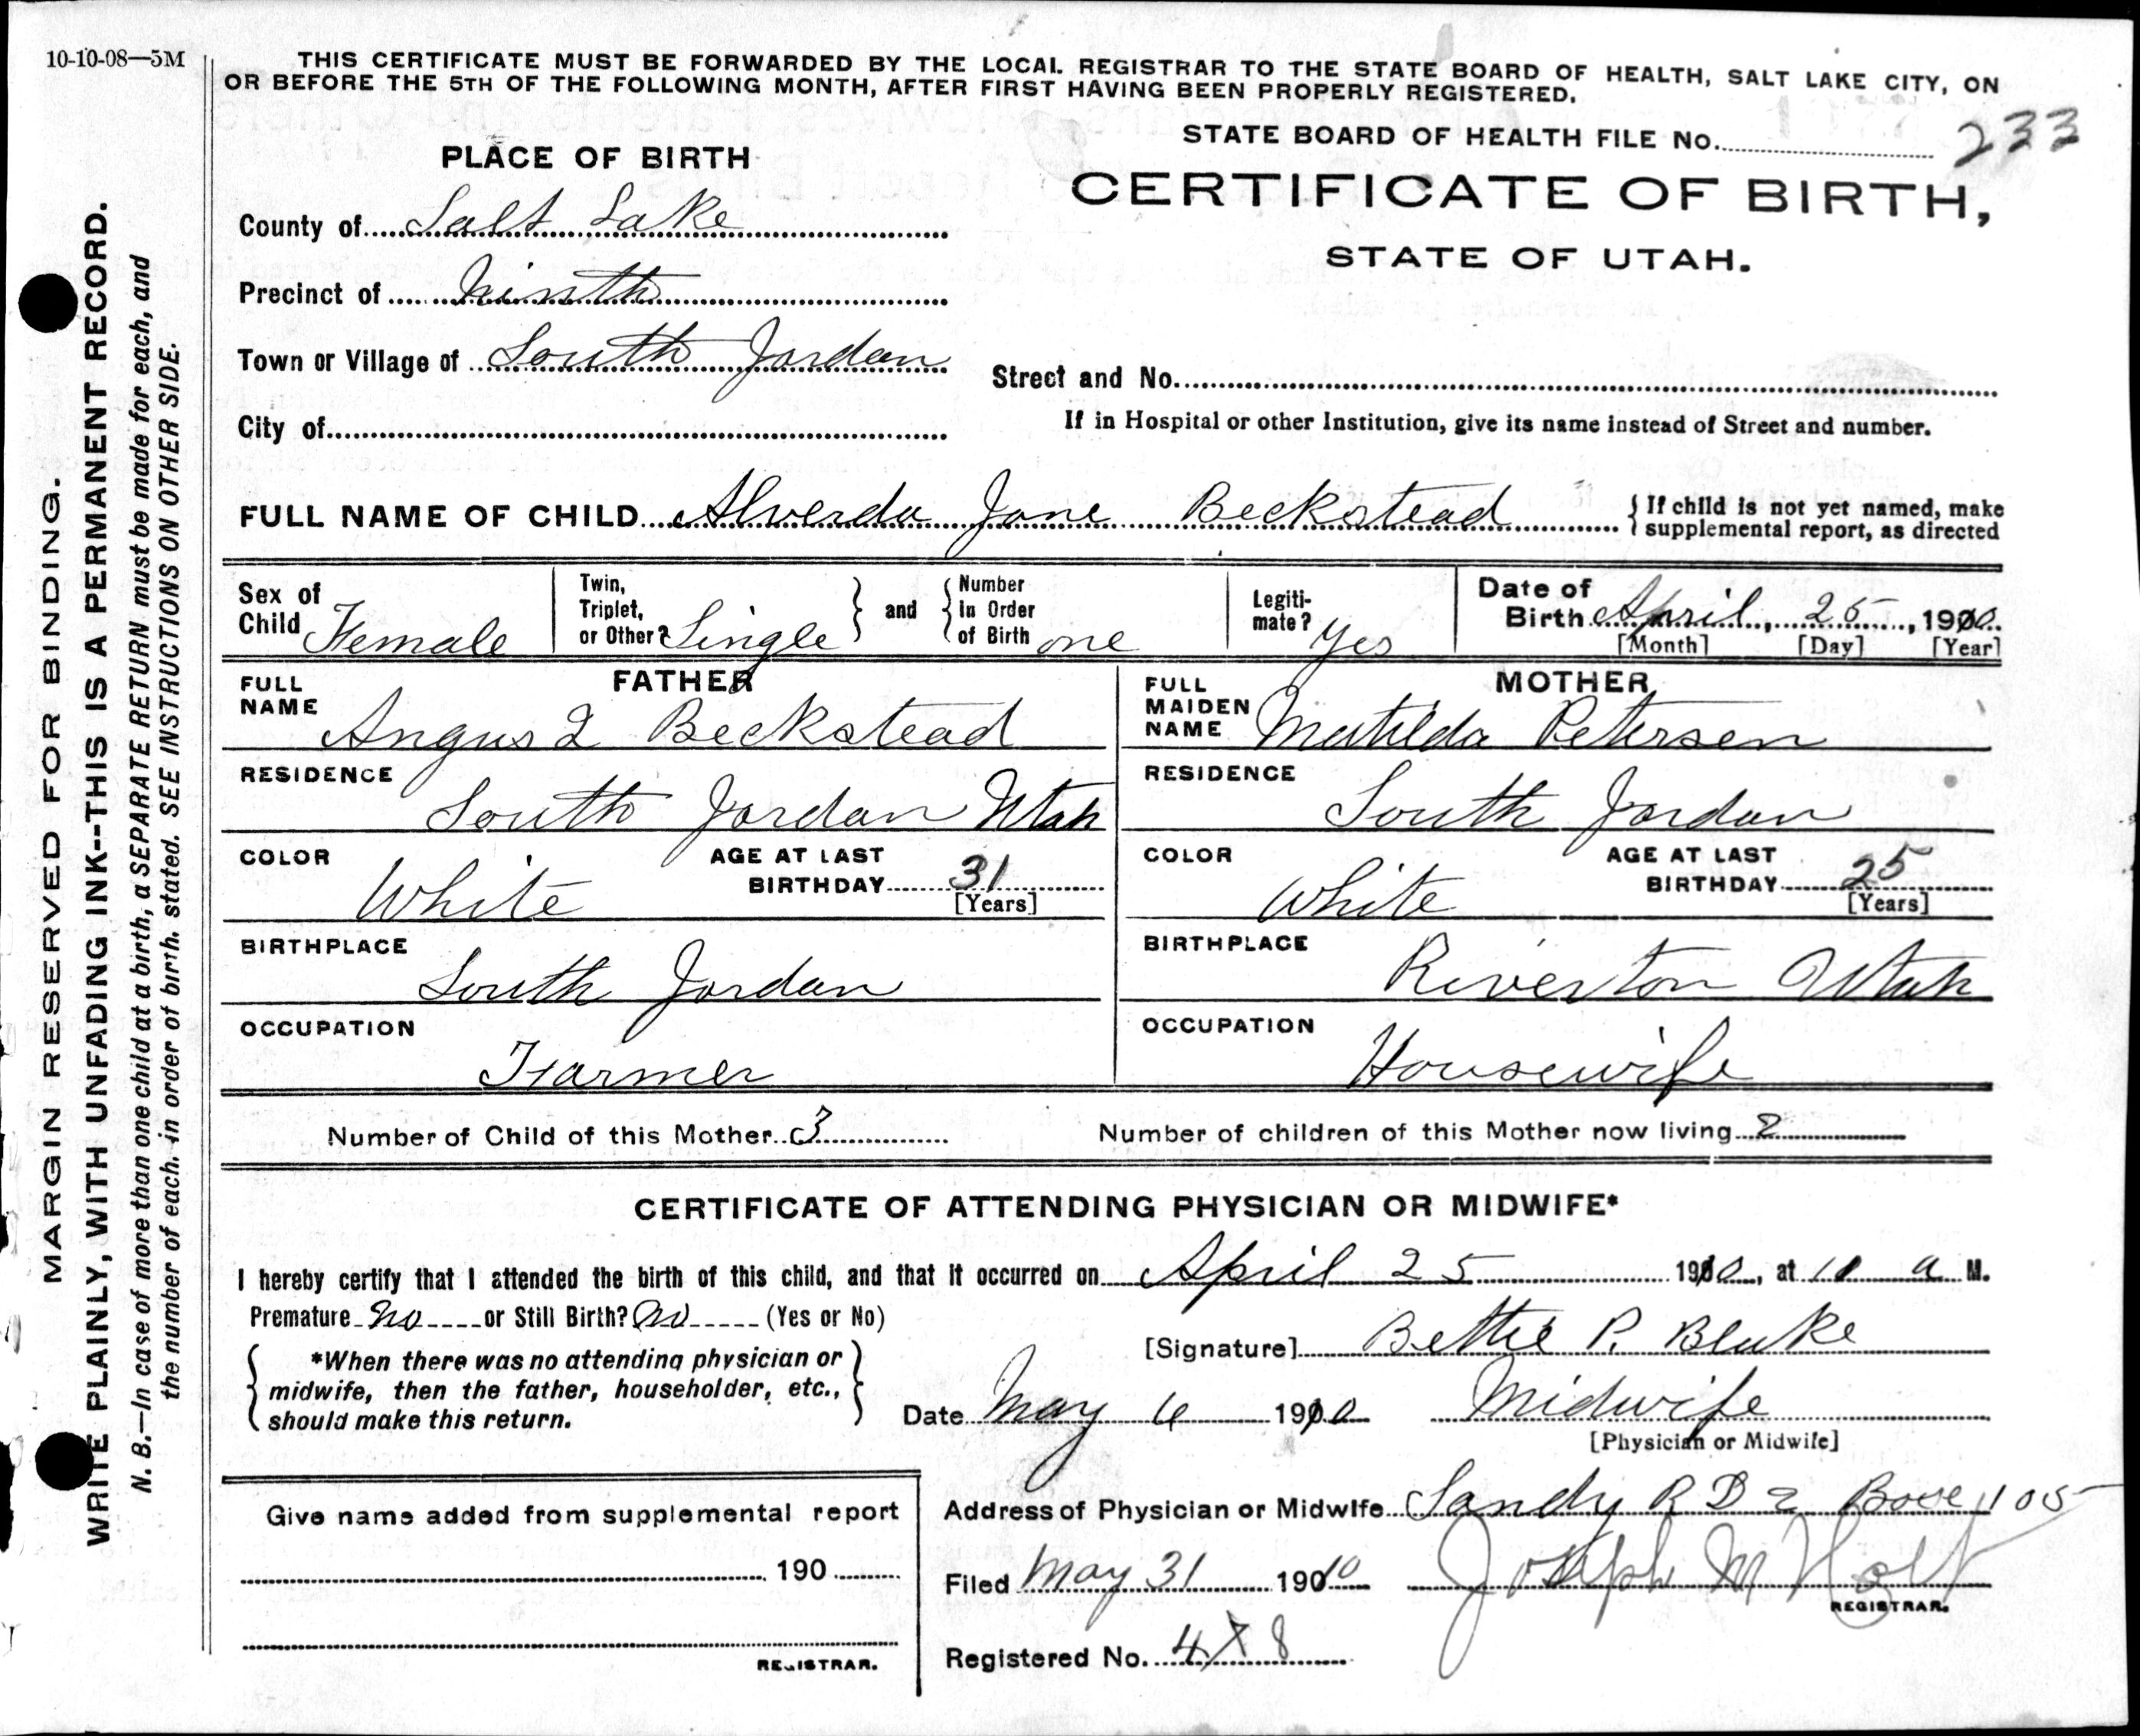 10-10-08—5M
THIS CERTIFICATE MUST BE FORWARDED BY THE LOCAL REGISTRAR TO THE STATE BOARD OF HEALTH, SALT LAKE CITY, ON
OR BEFORE THE 5TH OF THE FOLLOWING MONTH, AFTER FIRST HAVING BEEN PROPERLY REGISTERED.
STATE BOARD OF HEALTH FILE No. 233
PLACE OF BIRTH
CERTIFICATE OF BIRTH,
STATE OF UTAH.
County of Salt Lake
Precinct of Ninth
Town or Village of South Jordan
Street and No.
City of
If in Hospital or other Institution, give its name instead of Street and number.
FULL NAME OF CHILD Alverda Jane Beckstead
If child is not yet named, make
supplemental report, as directed
Sex of Child Female
Twin, Triplet, or Other? Single and Number in Order of Birth one
Legitimate? Yes
Date of Birth April, 25, 1910
[Month] [Day] [Year]
FATHER
FULL NAME Angus Beckstead
RESIDENCE South Jordan Utah
COLOR White
AGE AT LAST BIRTHDAY 31
[Years]
BIRTHPLACE South Jordan
OCCUPATION Farmer
MOTHER
FULL MAIDEN NAME Matilda Petersen
RESIDENCE South Jordan
COLOR White
AGE AT LAST BIRTHDAY 25
[Years]
BIRTHPLACE Riverton Utah
OCCUPATION Housewife
Number of Child of this Mother 3
Number of children of this Mother now living 2
CERTIFICATE OF ATTENDING PHYSICIAN OR MIDWIFE*
I hereby certify that I attended the birth of this child, and that it occurred on April 25 1910, at 11 a M.
Premature no or Still Birth? no (Yes or No)
[Signature] Bettie P. Blake
*When there was no attending physician or
midwife, then the father, householder, etc.,
should make this return.
Date May 6 1910 Midwife
[Physician or Midwife]
Give name added from supplemental report
190
REGISTRAR.
Address of Physician or Midwife Sandy R D 2 Box 105
Filed May 31 1910 Joseph M Holt
REGISTRAR.
Registered No. 478
MARGIN RESERVED FOR BINDING.
WRITE PLAINLY, WITH UNFADING INK--THIS IS A PERMANENT RECORD.
N. B.—In case of more than one child at a birth, a SEPARATE RETURN must be made for each, and
the number of each, in order of birth, stated. SEE INSTRUCTIONS ON OTHER SIDE.